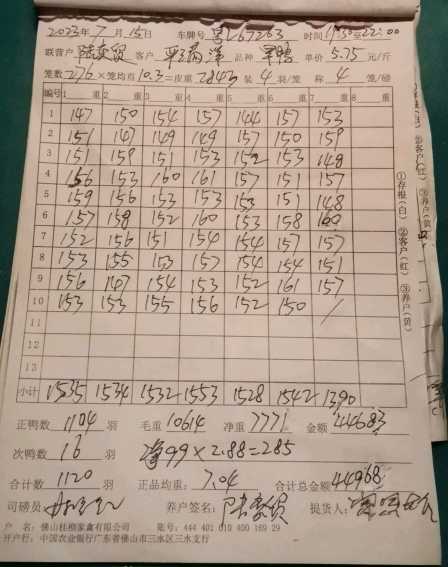 2023年7月15日 车牌号 粤L67263 时间 17:50至22:00
联营户 客户 品种 单价 5.75 元/斤
笼数 276 ×笼均重 10.3=皮重 2843 装 4 羽/笼 称 4 笼/磅
编号 1 重 2 重 3 重 4 重 5 重 6 重 7 重 8 重
1 147 150 154 157 144 157 153
2 151 147 149 149 157 150 159
3 151 159 151 153 152 153 149
4 156 153 160 161 157 151 157
5 159 156 153 153 153 151 148
6 157 159 152 160 153 158 160
7 152 156 151 154 154 157 157
8 153 155 153 157 154 154 151
9 156 147 154 153 152 161 157
10 153 153 155 156 152 150 /
11
12
13
小计 1535 1534 1532 1553 1528 1542 1390
正鸭数 1104 羽 毛重 10614 净重 7771 金额 44683
次鸭数 16 羽 99×2.88=285
合计数 1120 羽 正品均重: 7.04 合计总金额 44968
司磅员 养户签名: 提货人:
户 名: 佛山桂柳家禽有限公司 账号: 444 401 010 400 169 29
开户行: 中国农业银行广东省佛山市三水区三水支行
①存根(白) ②客户(红) ③养户(黄)